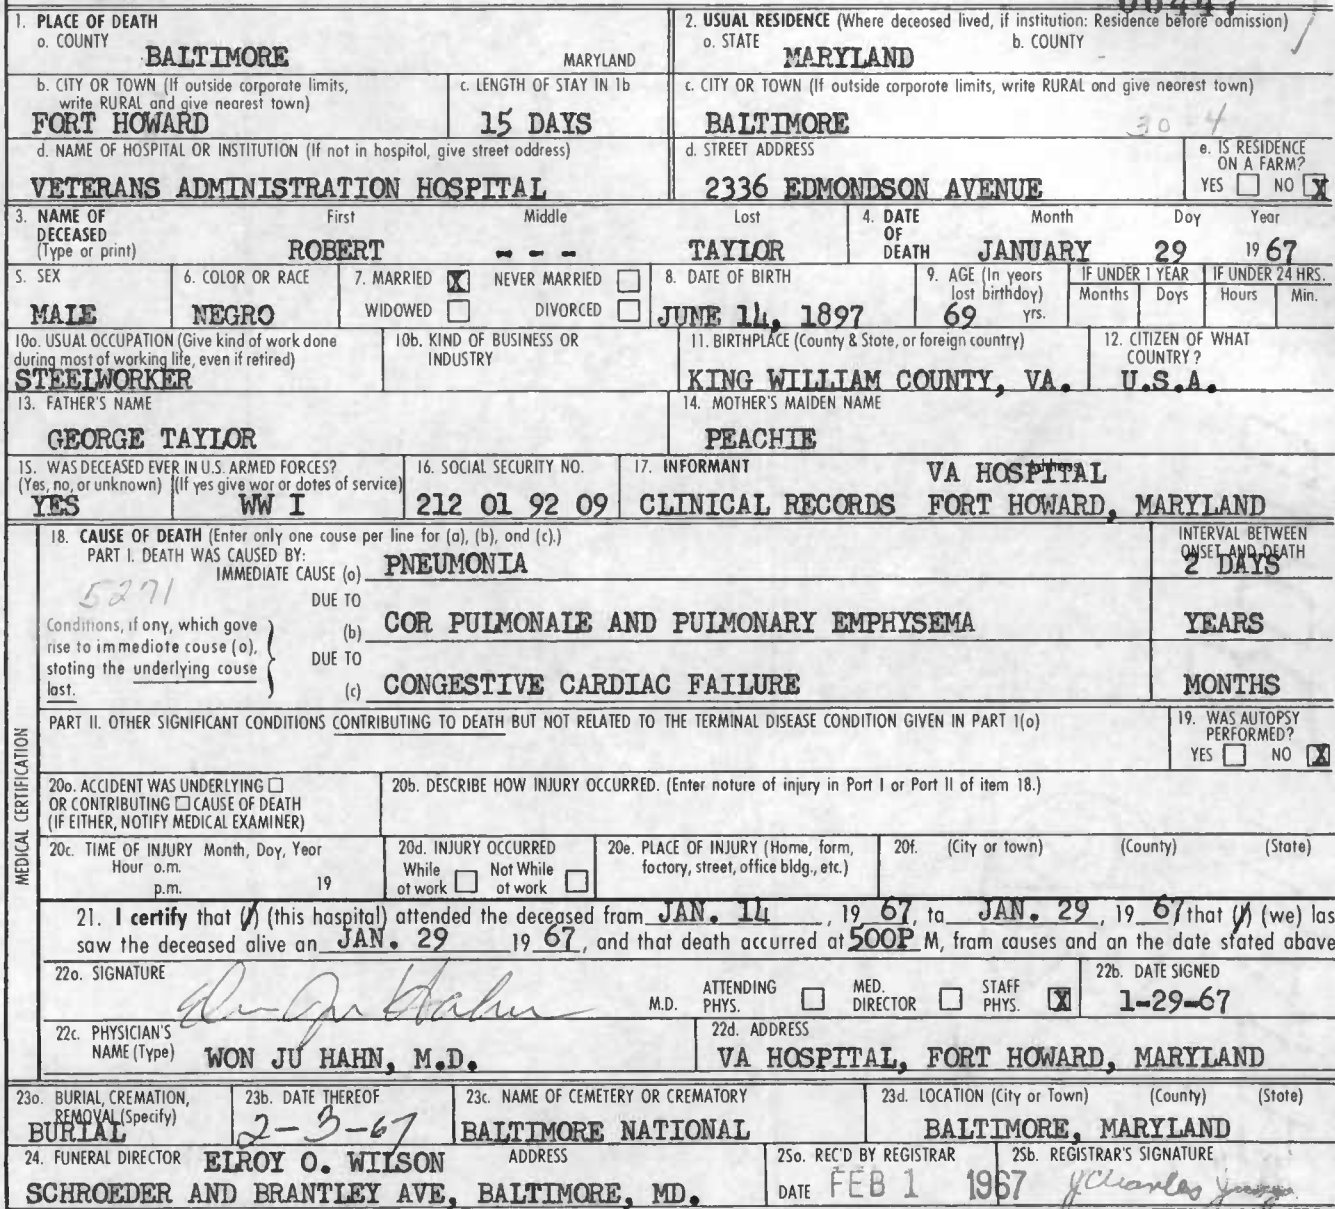 00447
1. PLACE OF DEATH
a. COUNTY
BALTIMORE MARYLAND
2. USUAL RESIDENCE (Where deceased lived, if institution: Residence before admission)
a. STATE b. COUNTY
MARYLAND
b. CITY OR TOWN (If outside corporate limits, write RURAL and give nearest town)
FORT HOWARD
c. LENGTH OF STAY IN 1b
15 DAYS
c. CITY OR TOWN (If outside corporate limits, write RURAL and give nearest town)
BALTIMORE 30-4
d. NAME OF HOSPITAL OR INSTITUTION (If not in hospital, give street address)
VETERANS ADMINISTRATION HOSPITAL
d. STREET ADDRESS
2336 EDMONDSON AVENUE
e. IS RESIDENCE ON A FARM?
YES NO X
3. NAME OF DECEASED (Type or print)
First Middle Last
ROBERT - - - TAYLOR
4. DATE OF DEATH
Month Day Year
JANUARY 29 1967
5. SEX
MALE
6. COLOR OR RACE
NEGRO
7. MARRIED X NEVER MARRIED
WIDOWED DIVORCED
8. DATE OF BIRTH
JUNE 14, 1897
9. AGE (In years last birthday)
69 yrs.
IF UNDER 1 YEAR
Months Days
IF UNDER 24 HRS.
Hours Min.
10a. USUAL OCCUPATION (Give kind of work done during most of working life, even if retired)
STEELWORKER
10b. KIND OF BUSINESS OR INDUSTRY
11. BIRTHPLACE (County & State, or foreign country)
KING WILLIAM COUNTY, VA.
12. CITIZEN OF WHAT COUNTRY?
U.S.A.
13. FATHER'S NAME
GEORGE TAYLOR
14. MOTHER'S MAIDEN NAME
PEACHIE
15. WAS DECEASED EVER IN U.S. ARMED FORCES?
(Yes, no, or unknown) (If yes give war or dates of service)
YES WW I
16. SOCIAL SECURITY NO.
212 01 92 09
17. INFORMANT Address
VA HOSPITAL
CLINICAL RECORDS FORT HOWARD, MARYLAND
MEDICAL CERTIFICATION
18. CAUSE OF DEATH (Enter only one cause per line for (a), (b), and (c).)
INTERVAL BETWEEN ONSET AND DEATH
PART I. DEATH WAS CAUSED BY:
IMMEDIATE CAUSE (a) PNEUMONIA 2 DAYS
5271
Conditions, if any, which gave rise to immediate cause (a), stating the underlying cause last.
DUE TO
(b) COR PULMONALE AND PULMONARY EMPHYSEMA YEARS
DUE TO
(c) CONGESTIVE CARDIAC FAILURE MONTHS
PART II. OTHER SIGNIFICANT CONDITIONS CONTRIBUTING TO DEATH BUT NOT RELATED TO THE TERMINAL DISEASE CONDITION GIVEN IN PART 1(a)
19. WAS AUTOPSY PERFORMED?
YES NO X
20a. ACCIDENT WAS UNDERLYING
OR CONTRIBUTING CAUSE OF DEATH
(IF EITHER, NOTIFY MEDICAL EXAMINER)
20b. DESCRIBE HOW INJURY OCCURRED. (Enter nature of injury in Part I or Part II of item 18.)
20c. TIME OF INJURY Month, Day, Year
Hour a.m.
p.m. 19
20d. INJURY OCCURRED
While at work Not While at work
20e. PLACE OF INJURY (Home, farm, factory, street, office bldg., etc.)
20f. (City or town) (County) (State)
21. I certify that (I) (this hospital) attended the deceased from JAN. 14, 1967, to JAN. 29, 1967 that (I) (we) las
saw the deceased alive on JAN. 29 1967, and that death occurred at 500P M, from causes and on the date stated above
22a. SIGNATURE
M.D. ATTENDING PHYS. MED. DIRECTOR STAFF PHYS. X
22b. DATE SIGNED
1-29-67
22c. PHYSICIAN'S NAME (Type)
WON JU HAHN, M.D.
22d. ADDRESS
VA HOSPITAL, FORT HOWARD, MARYLAND
23a. BURIAL, CREMATION, REMOVAL (Specify)
BURIAL
23b. DATE THEREOF
2-3-67
23c. NAME OF CEMETERY OR CREMATORY
BALTIMORE NATIONAL
23d. LOCATION (City or Town) (County) (State)
BALTIMORE, MARYLAND
24. FUNERAL DIRECTOR ADDRESS
ELROY O. WILSON
SCHROEDER AND BRANTLEY AVE, BALTIMORE, MD.
25a. REC'D BY REGISTRAR
DATE FEB 1 1967
25b. REGISTRAR'S SIGNATURE